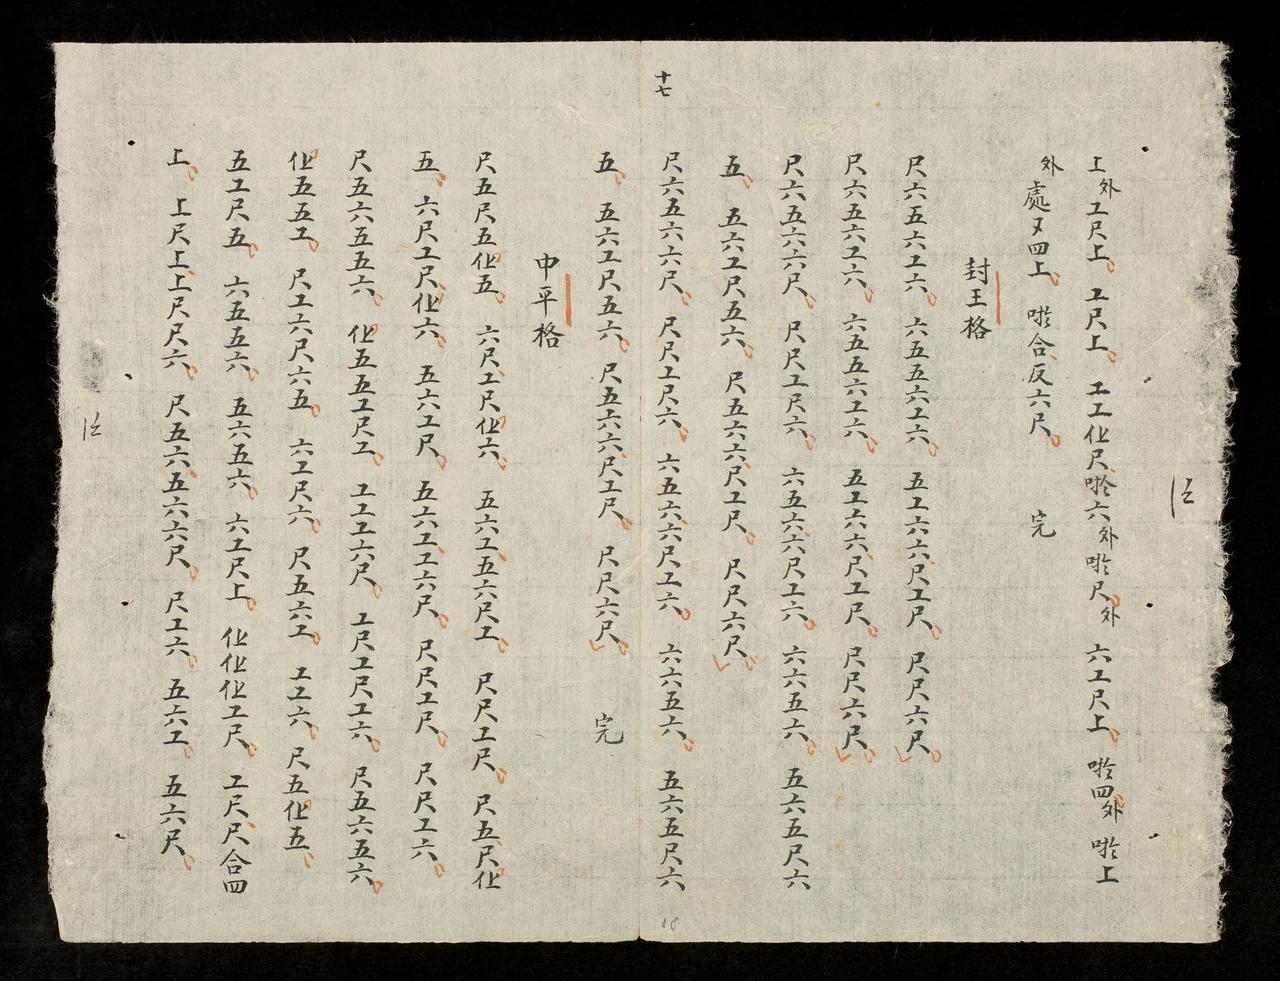 十七
上外工尺上 工尺上 工工化尺 六外 尺外 六工尺上 四外 上
外處 四上 合反六尺 完
封王格
尺六五六工六 六五五六工六 五工六六尺工尺 尺尺六尺
尺六五六工六 六五五六工六 五工六六尺工尺 尺尺六尺
尺六五六六尺 尺尺工尺六 六五六六尺工六 六六五六 五六五尺六
五 五六工尺五六 尺五六六尺工尺 尺尺六尺
尺六五六六尺 尺尺工尺六 六五六六尺工六 六六五六 五六五尺六
五 五六工尺五六 尺五六六尺工尺 尺尺六尺 完
中平格
尺五尺五化五 六尺工尺化六 五六工五六尺工 尺尺工尺 尺五尺化
五 六尺工尺化六 五六工尺 五六工工六尺 尺尺工尺 尺尺工六
尺五六五五六 化五五工尺工 工工工六尺 工尺工尺工六 尺五六五六
化五五工 尺工六尺六五 六工尺六 尺五六工 工工六 尺五化五
五工尺五 六五五六 五六五六 六工尺上 化化化工尺 工尺尺合四
上 上尺上上尺尺六 尺五六五六六尺 尺工六 五六工 五六尺
18